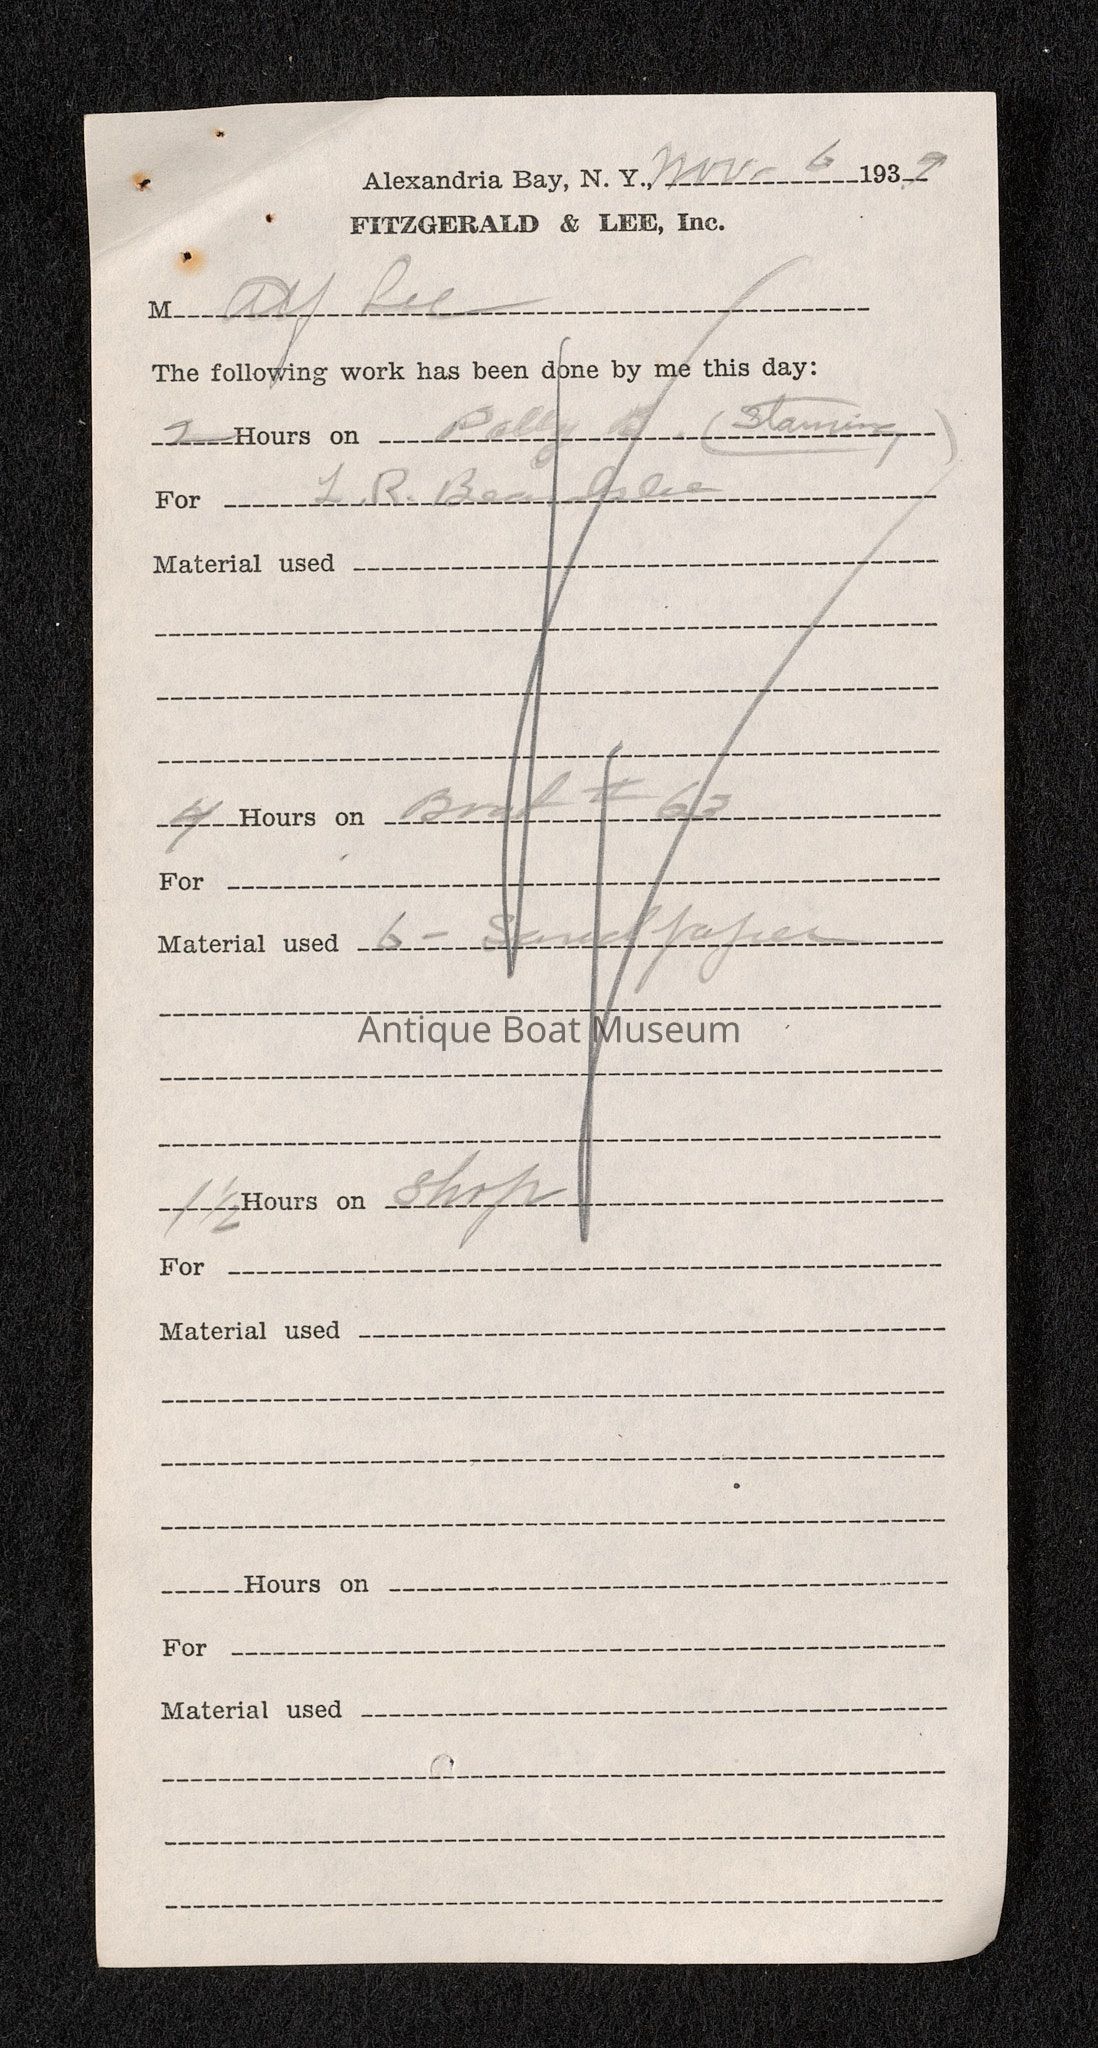 Alexandria Bay, N. Y., Nov. 6 1937
FITZGERALD & LEE, Inc.
M Alf Lee
The following work has been done by me this day:
2 Hours on Polly B. (Staining)
For L.R. Beardslee
Material used
4 Hours on Boat # 63
For
Material used 6 - Sandpaper
Antique Boat Museum
1 1/2 Hours on Shop
For
Material used
Hours on
For
Material used